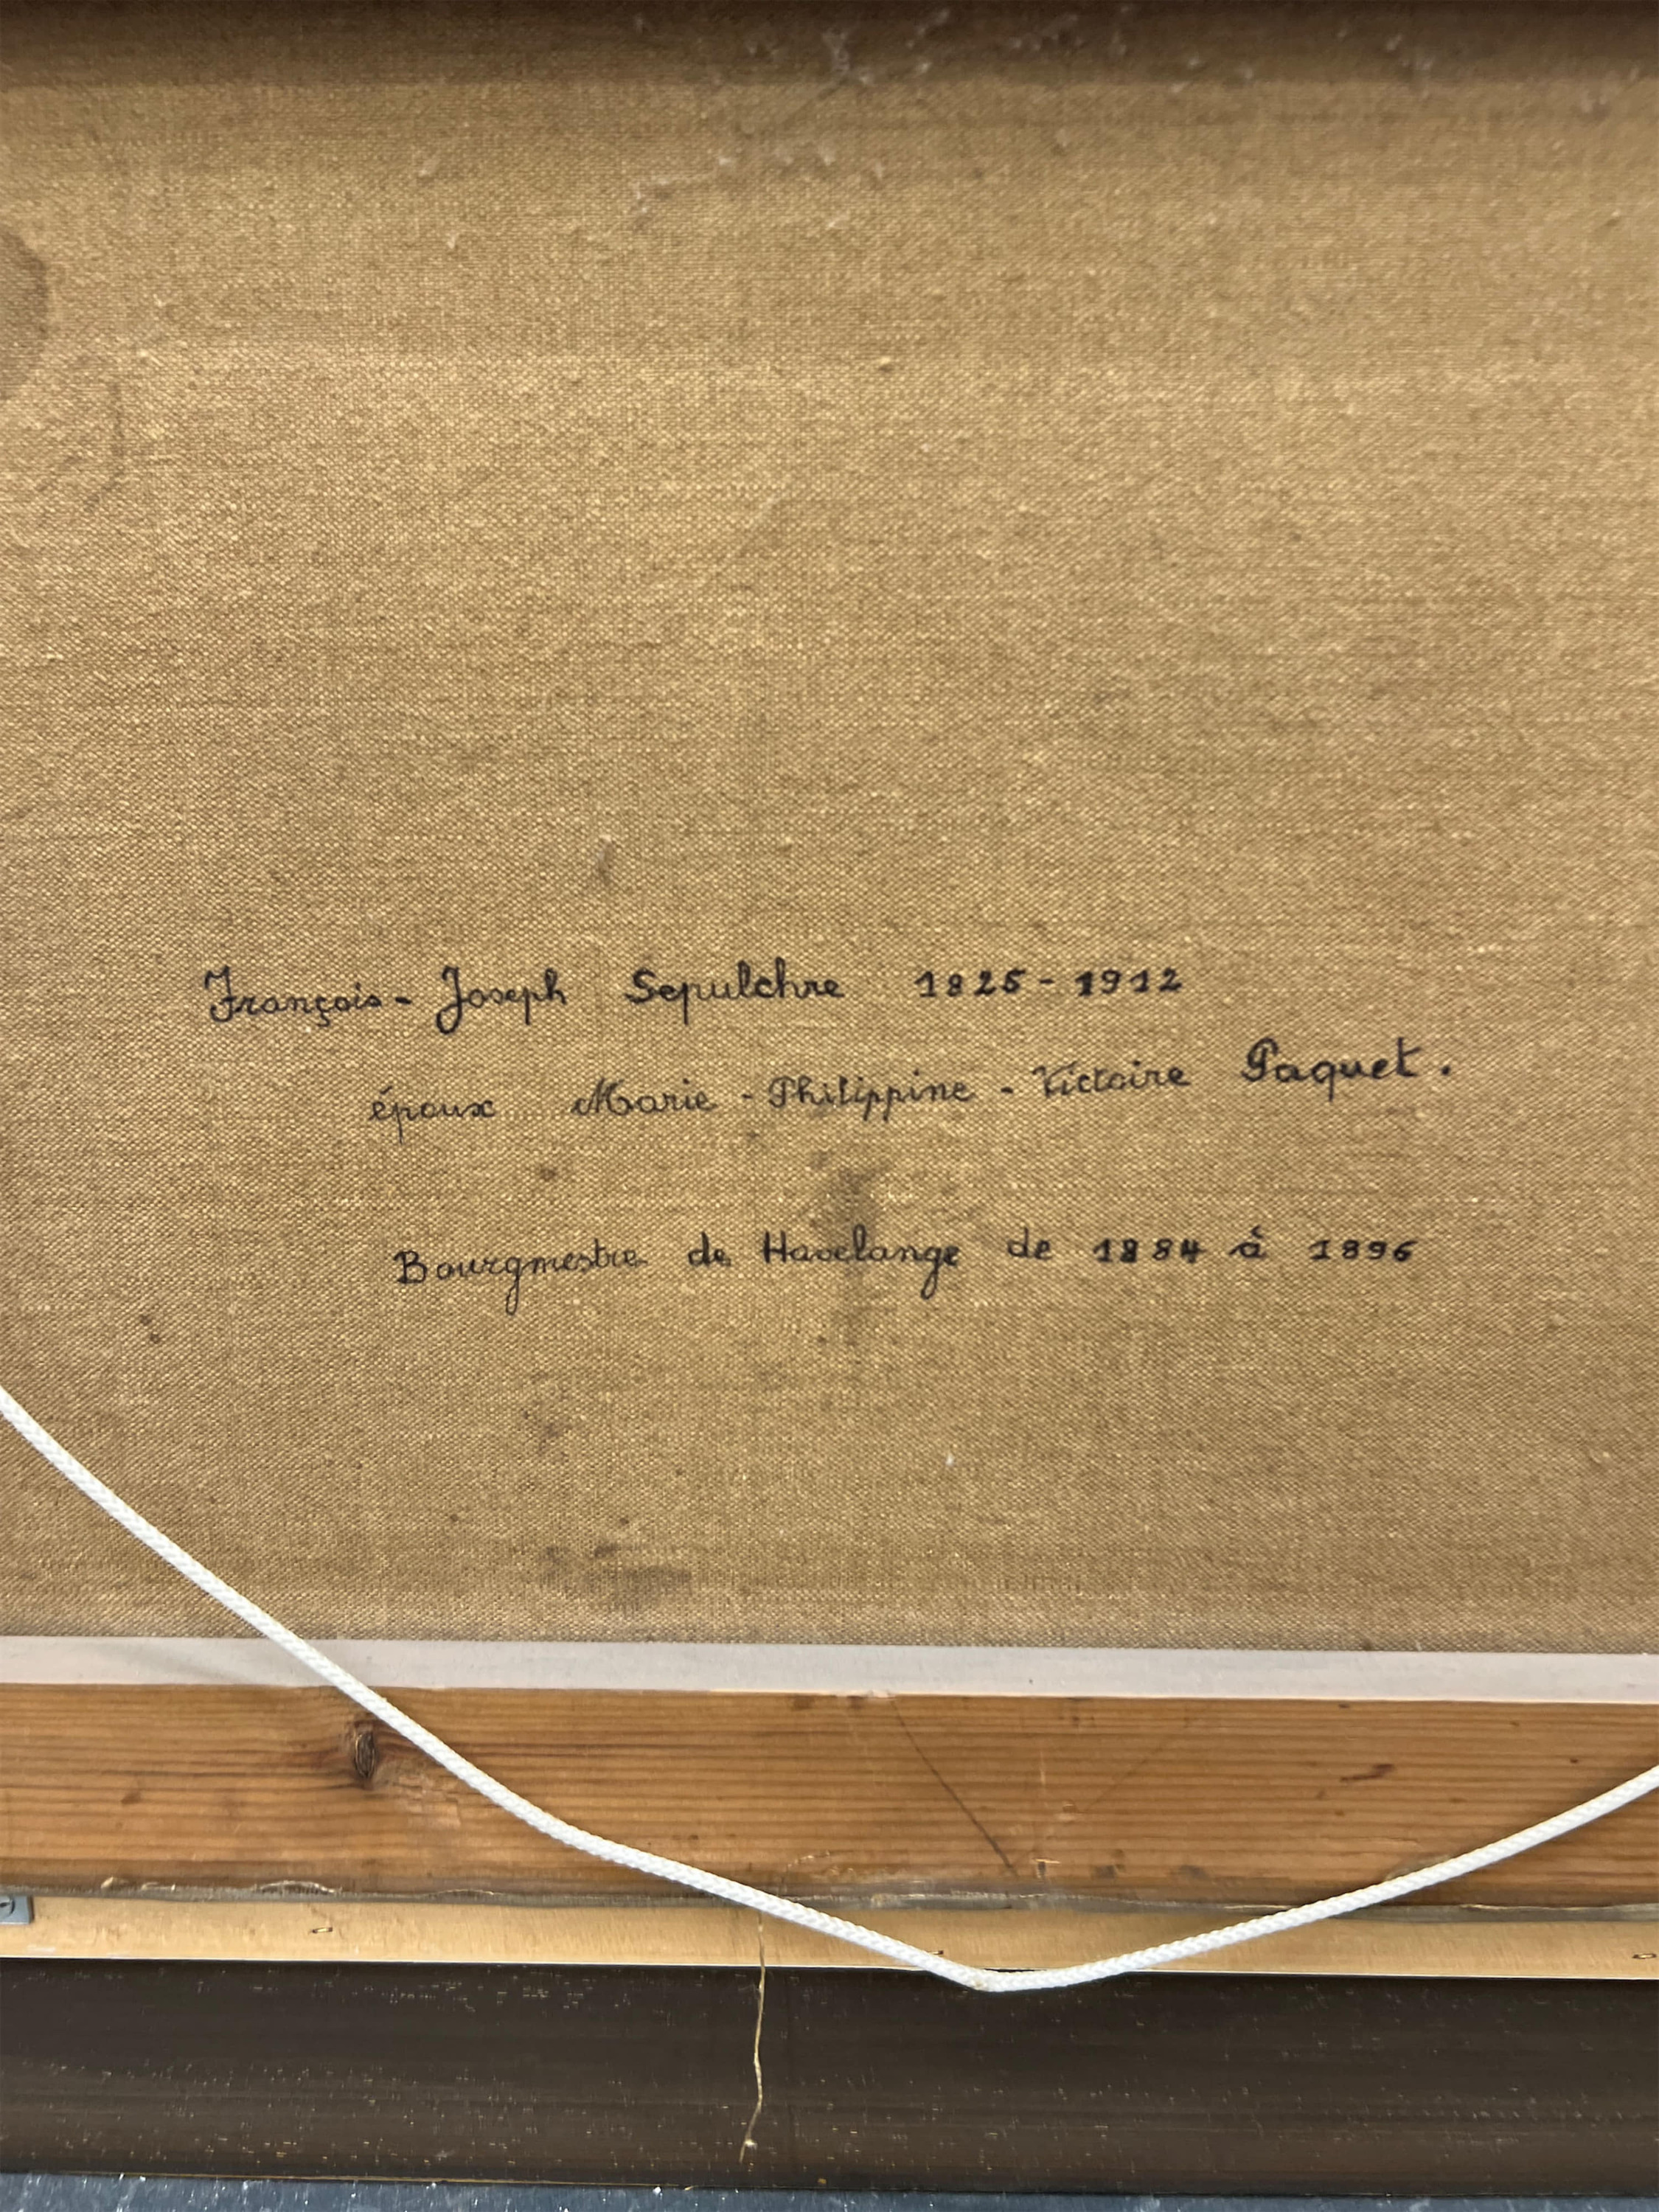 François - Joseph Sepulchre 1825 - 1912
époux Marie - Philippine - Victoire Paquet.
Bourgmestre de Havelange de 1884 à 1896